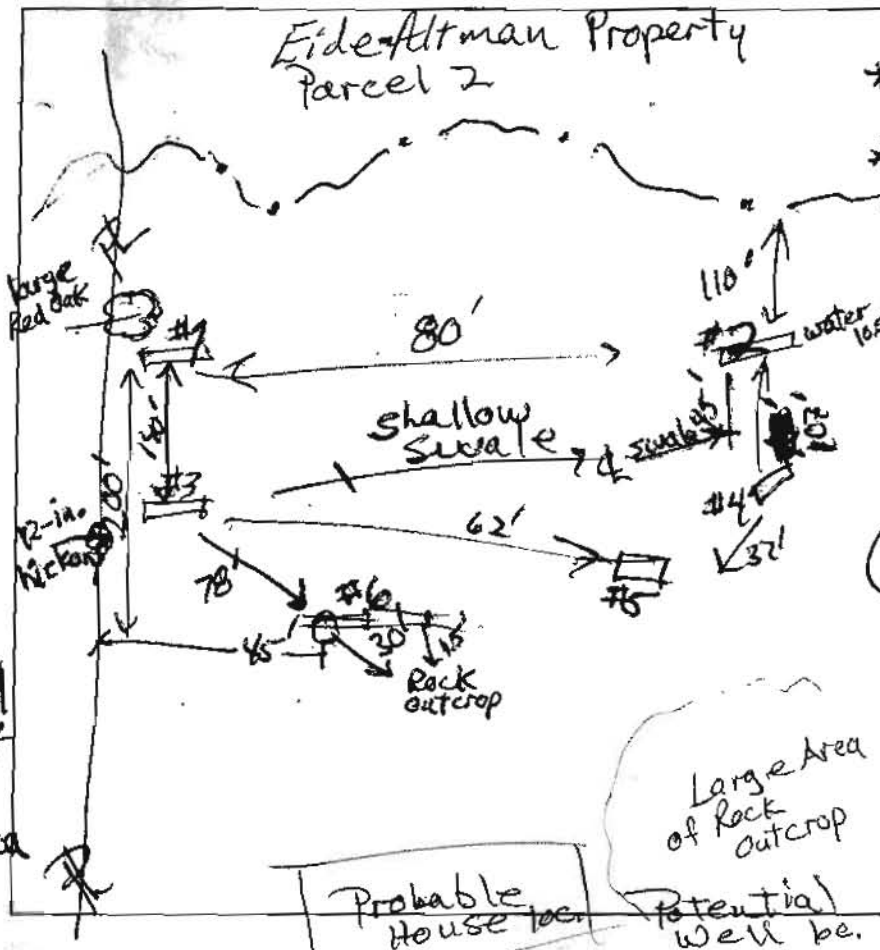 Eide-Altman Property
Parcel 2
PL
Large
Red Oak
#1
80'
110'
#2
water
Shallow
Swale
swale
95'
102'
140'
200'
#3
#4
12-in.
Hickory
62'
32'
78'
#6
#5
30'
15'
85
Rock
outcrop
Large Area
of Rock
Outcrop
PL
Probable
House loc.
Potential
Well loc.